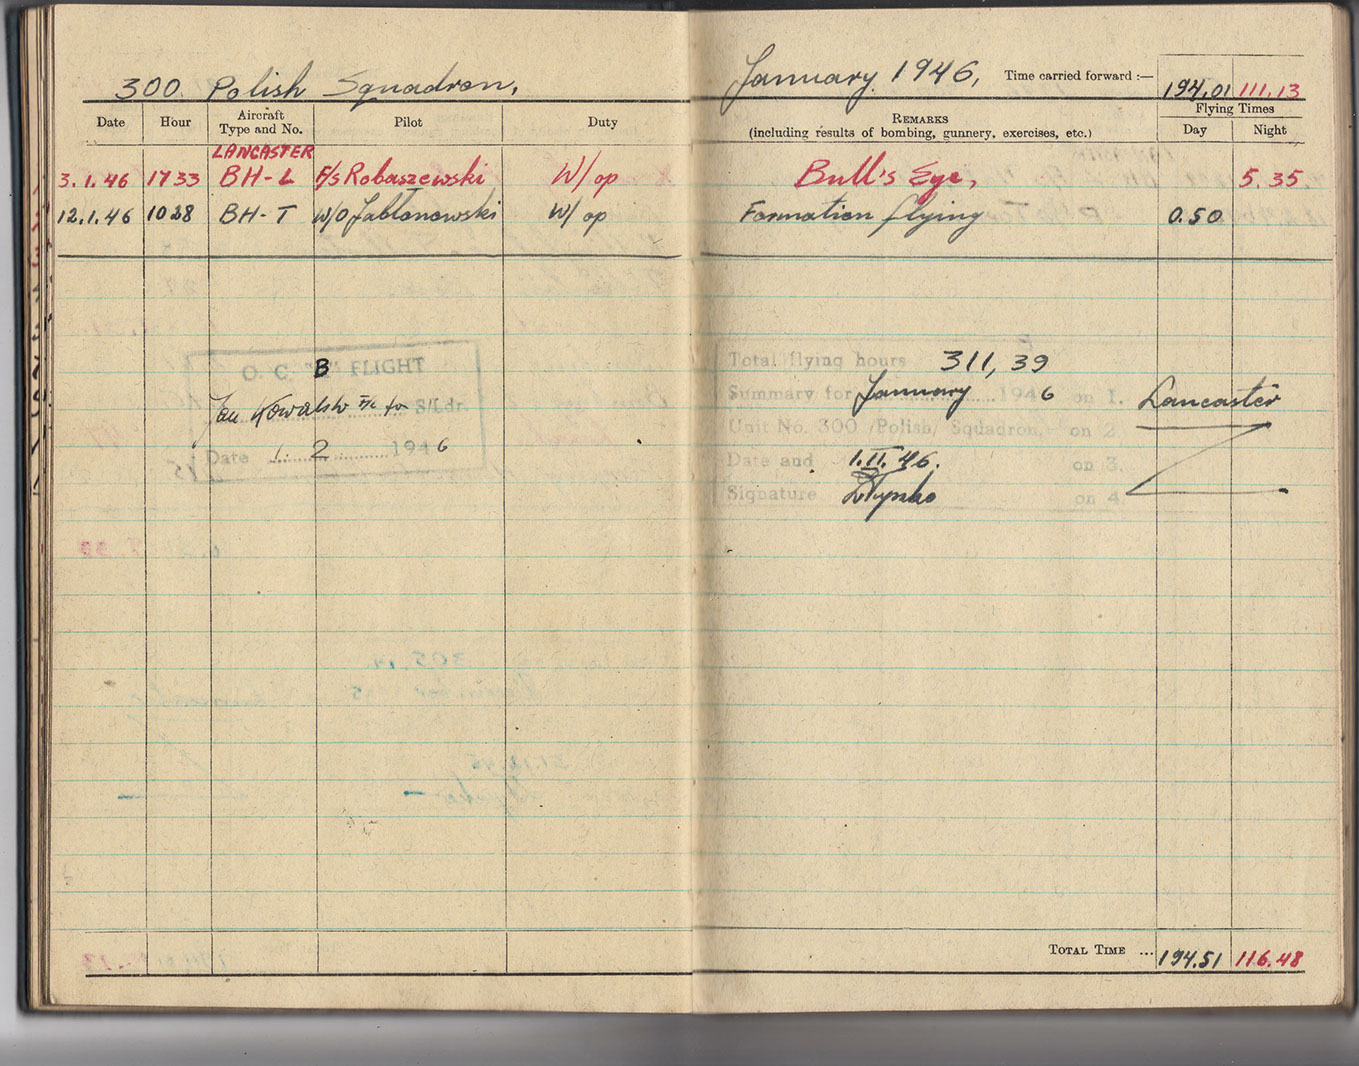 300 Polish Squadron,
Date Hour Aircraft Type and No. Pilot Duty
LANCASTER
3.1.46 1733 BH-L F/S Robaszewski W/op
12.1.46 1028 BH-T W/O Jabłonowski W/op
O. C. B FLIGHT
Jan Kowalski F/Lt for S/Ldr.
Date 1. 2 1946
January 1946, Time carried forward :— 194.01 111.13
REMARKS Flying Times
(including results of bombing, gunnery, exercises, etc.) Day Night
Bull's Eye, 5.35.
Formation flying 0.50
Total flying hours 311,39
Summary for January 1946 on 1. Lancaster
Unit No. 300 /Polish/ Squadron,- on 2.
Date and 1.II.46. on 3.
Signature on 4.
TOTAL TIME ... 194.51 116.48